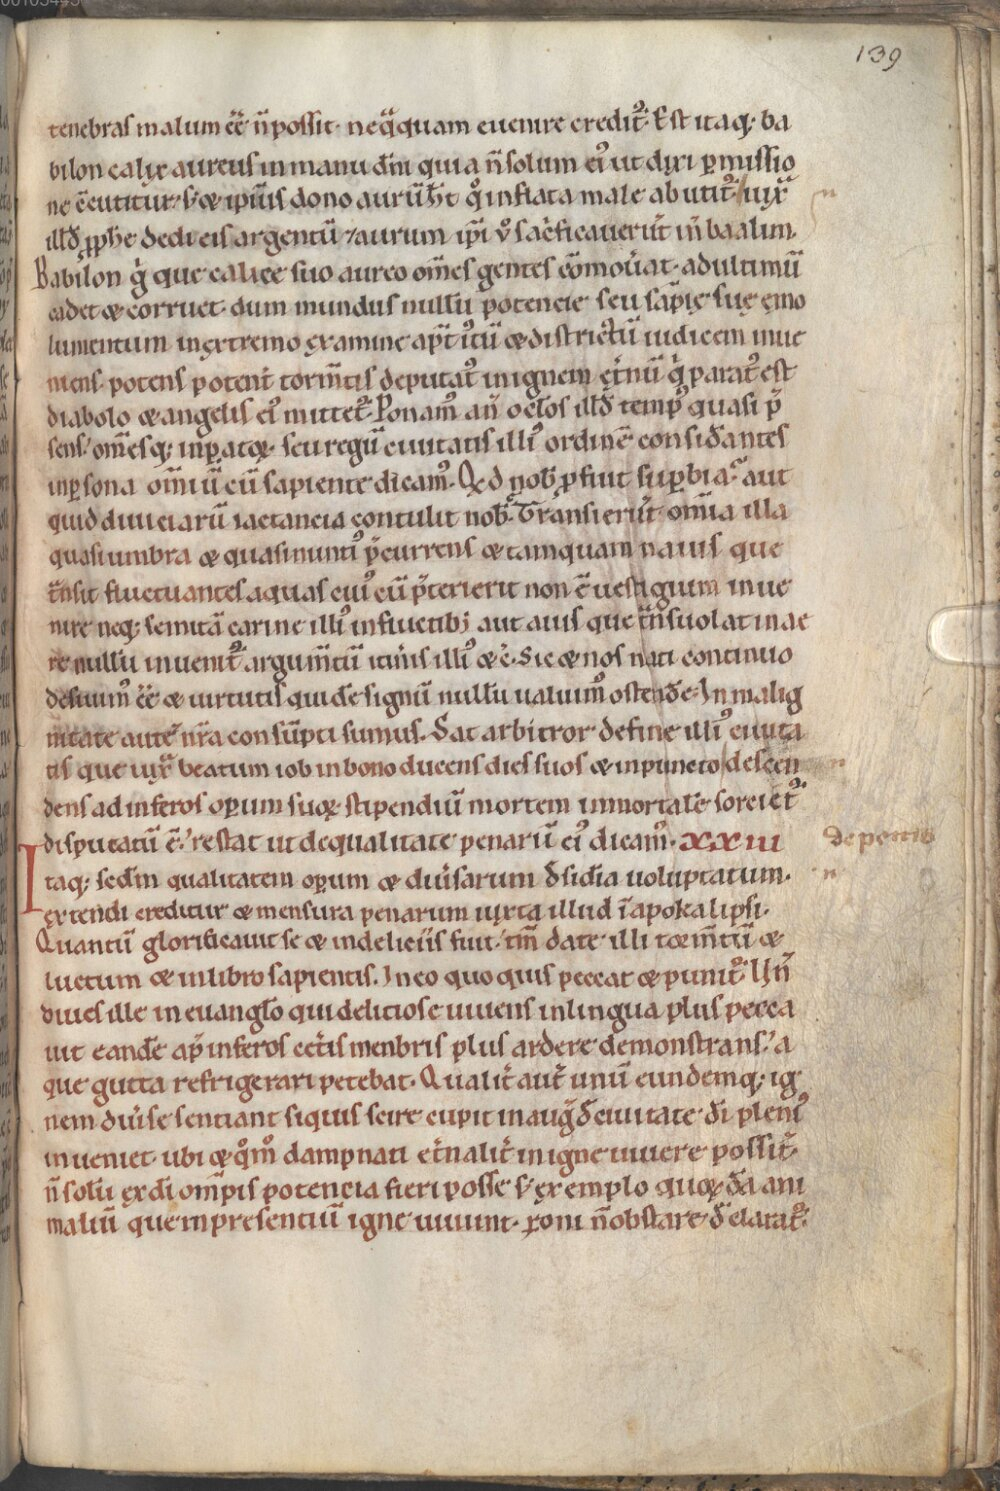 139
tenebras malum eẽ ñ possit. neq̃quam euenire credit᷑. Est itaq; ba
bilon calix aureus in manu dñi quia ñ solum ei᷒ ut dixi ꝑmissio
ne ẽ eutitur. s; & ipsi᷒ dono aurũ h̃t q̊ inflata male abutit᷑ iuxᷓ
illđ ꝓph̃e dedi eis argentũ ⁊ aurum ip̃i v̊ sac̃ficauerũt in baalim.
Babilon g̊ que calice suo aureo om̃s gentes cõmou̓at. ad ultimũ
cadet & corruet. dum mundus nullũ potencie seu sap̃ię suę emo
lumentum in extremo examine ap̃t iᷤtũ & districtũ iudicem inue
niens. potens potent̓ torm̃tis deputat᷒ in ignem et̓nũ q̓ parat᷒ est
diabolo & angelis ei᷒ mittet᷑. Ponam᷒ añ oc̃los illđ temp᷒ quasi p̃
sens. om̃esq; inꝑatoꝝ. seu regũ ciuitatis illi᷒ ordinẽ considãntes
in ꝑsona omĩũ cũ sapiente dicam᷒. Qđ nob̃ ꝓfuit suꝑbia. aut
quid diuiciarũ iactancia contulit nob̃. Transier̃t om̃ia illa
quasi umbra & quasi nunti᷒ p̃currens & tamquam nauis que
tñsit fluctuantes aquas cui᷒ cũ p̃terierit non ẽ uestigium inue
nire neq; semitã carine illi᷒ in fluctib; aut auis que tñsuolat in ae
re nullũ inuenit᷑ argum̃tũ itiñis illi᷒ &c̃. Sic & nos nati continuo
desiuim᷒ eẽ & uirtutis quidẽ signũ nullũ ualuim᷒ ostendẽ. In malig
nitate autẽ nr̃a consũpti sumus. Sat arbitror de fine illi᷒ ciuita
tis que iuxᷓ beatum iob in bono ducens dies suos & in puncto descen
dens ad inferos oꝑum suoꝝ stipendiũ mortem inmortalẽ sorciet᷑
disputatũ ẽ. restat ut de qualitate penarũ ei᷒ dicam᷒. XXIII
de penis
Itaq; sedm̃ qualitatem oꝑum & diu̓sarum đsidia uoluptatum.
extendi creditur & mensura penarum iuxta illud ĩ apokalipsi.
Quantũ glorificauit se & in deliciis fuit. tm̃ date illi torm̃tũ &
luctum & in libro sapientis. In eo quo quis peccat & punit᷑. Hĩñ
diues ille in euangl̃o qui deliciose uiuens in lingua plus pecca
uit eandẽ ap̃ inferos cet̓is menbris plus ardere demonstrans. a
que gutta refrigerari petebat. Qualit̓ aut̃ unũ eundemq; ig
nem diu̓se sentiant siquis scire cupit in aug̃ đ ciuitate đi pleni᷒
inueniet. ubi & q̊m᷒ dampnati et̓nalit̓ in igne uiuere possit.
ñ solũ ex đi om̃ipotencia fieri posse s; exemplo quoꝝđã ani
maliũ que in presentiũ igne uiuunt. rõni ñ obstare đclarat᷑.